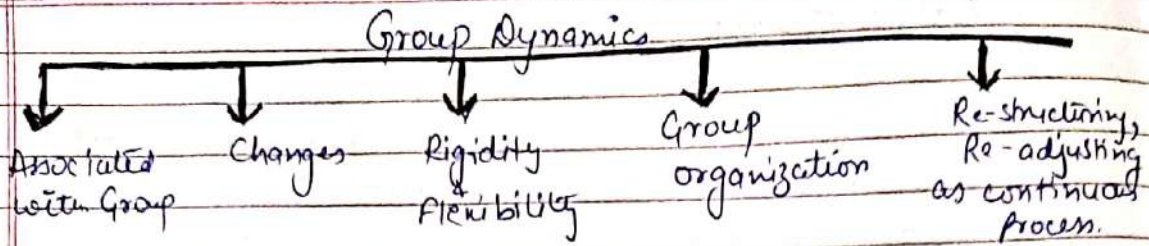 Group Dynamics
Associated
with Group
Changes
Rigidity
&
Flexibility
Group
organization
Re-structuring,
Re-adjusting
as continuous
process.